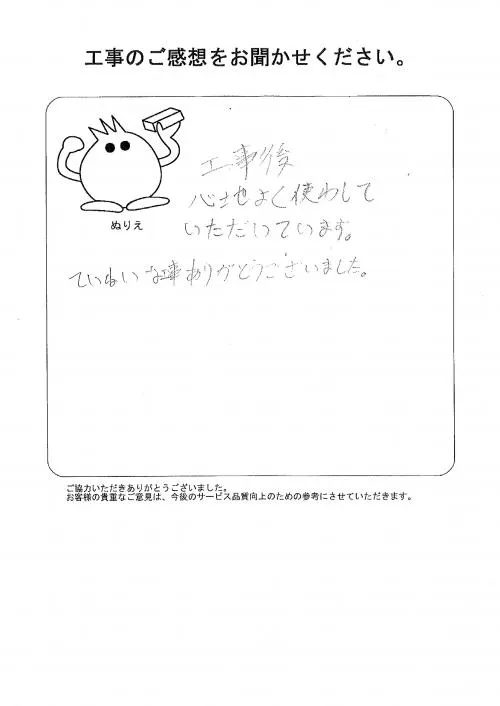 工事のご感想をお聞かせください。
ぬりえ
工事後
心地よく使わして
いただいています。
ていねいな工事ありがとうございました。
ご協力いただきありがとうございました。
お客様の貴重なご意見は、今後のサービス品質向上のための参考にさせていただきます。